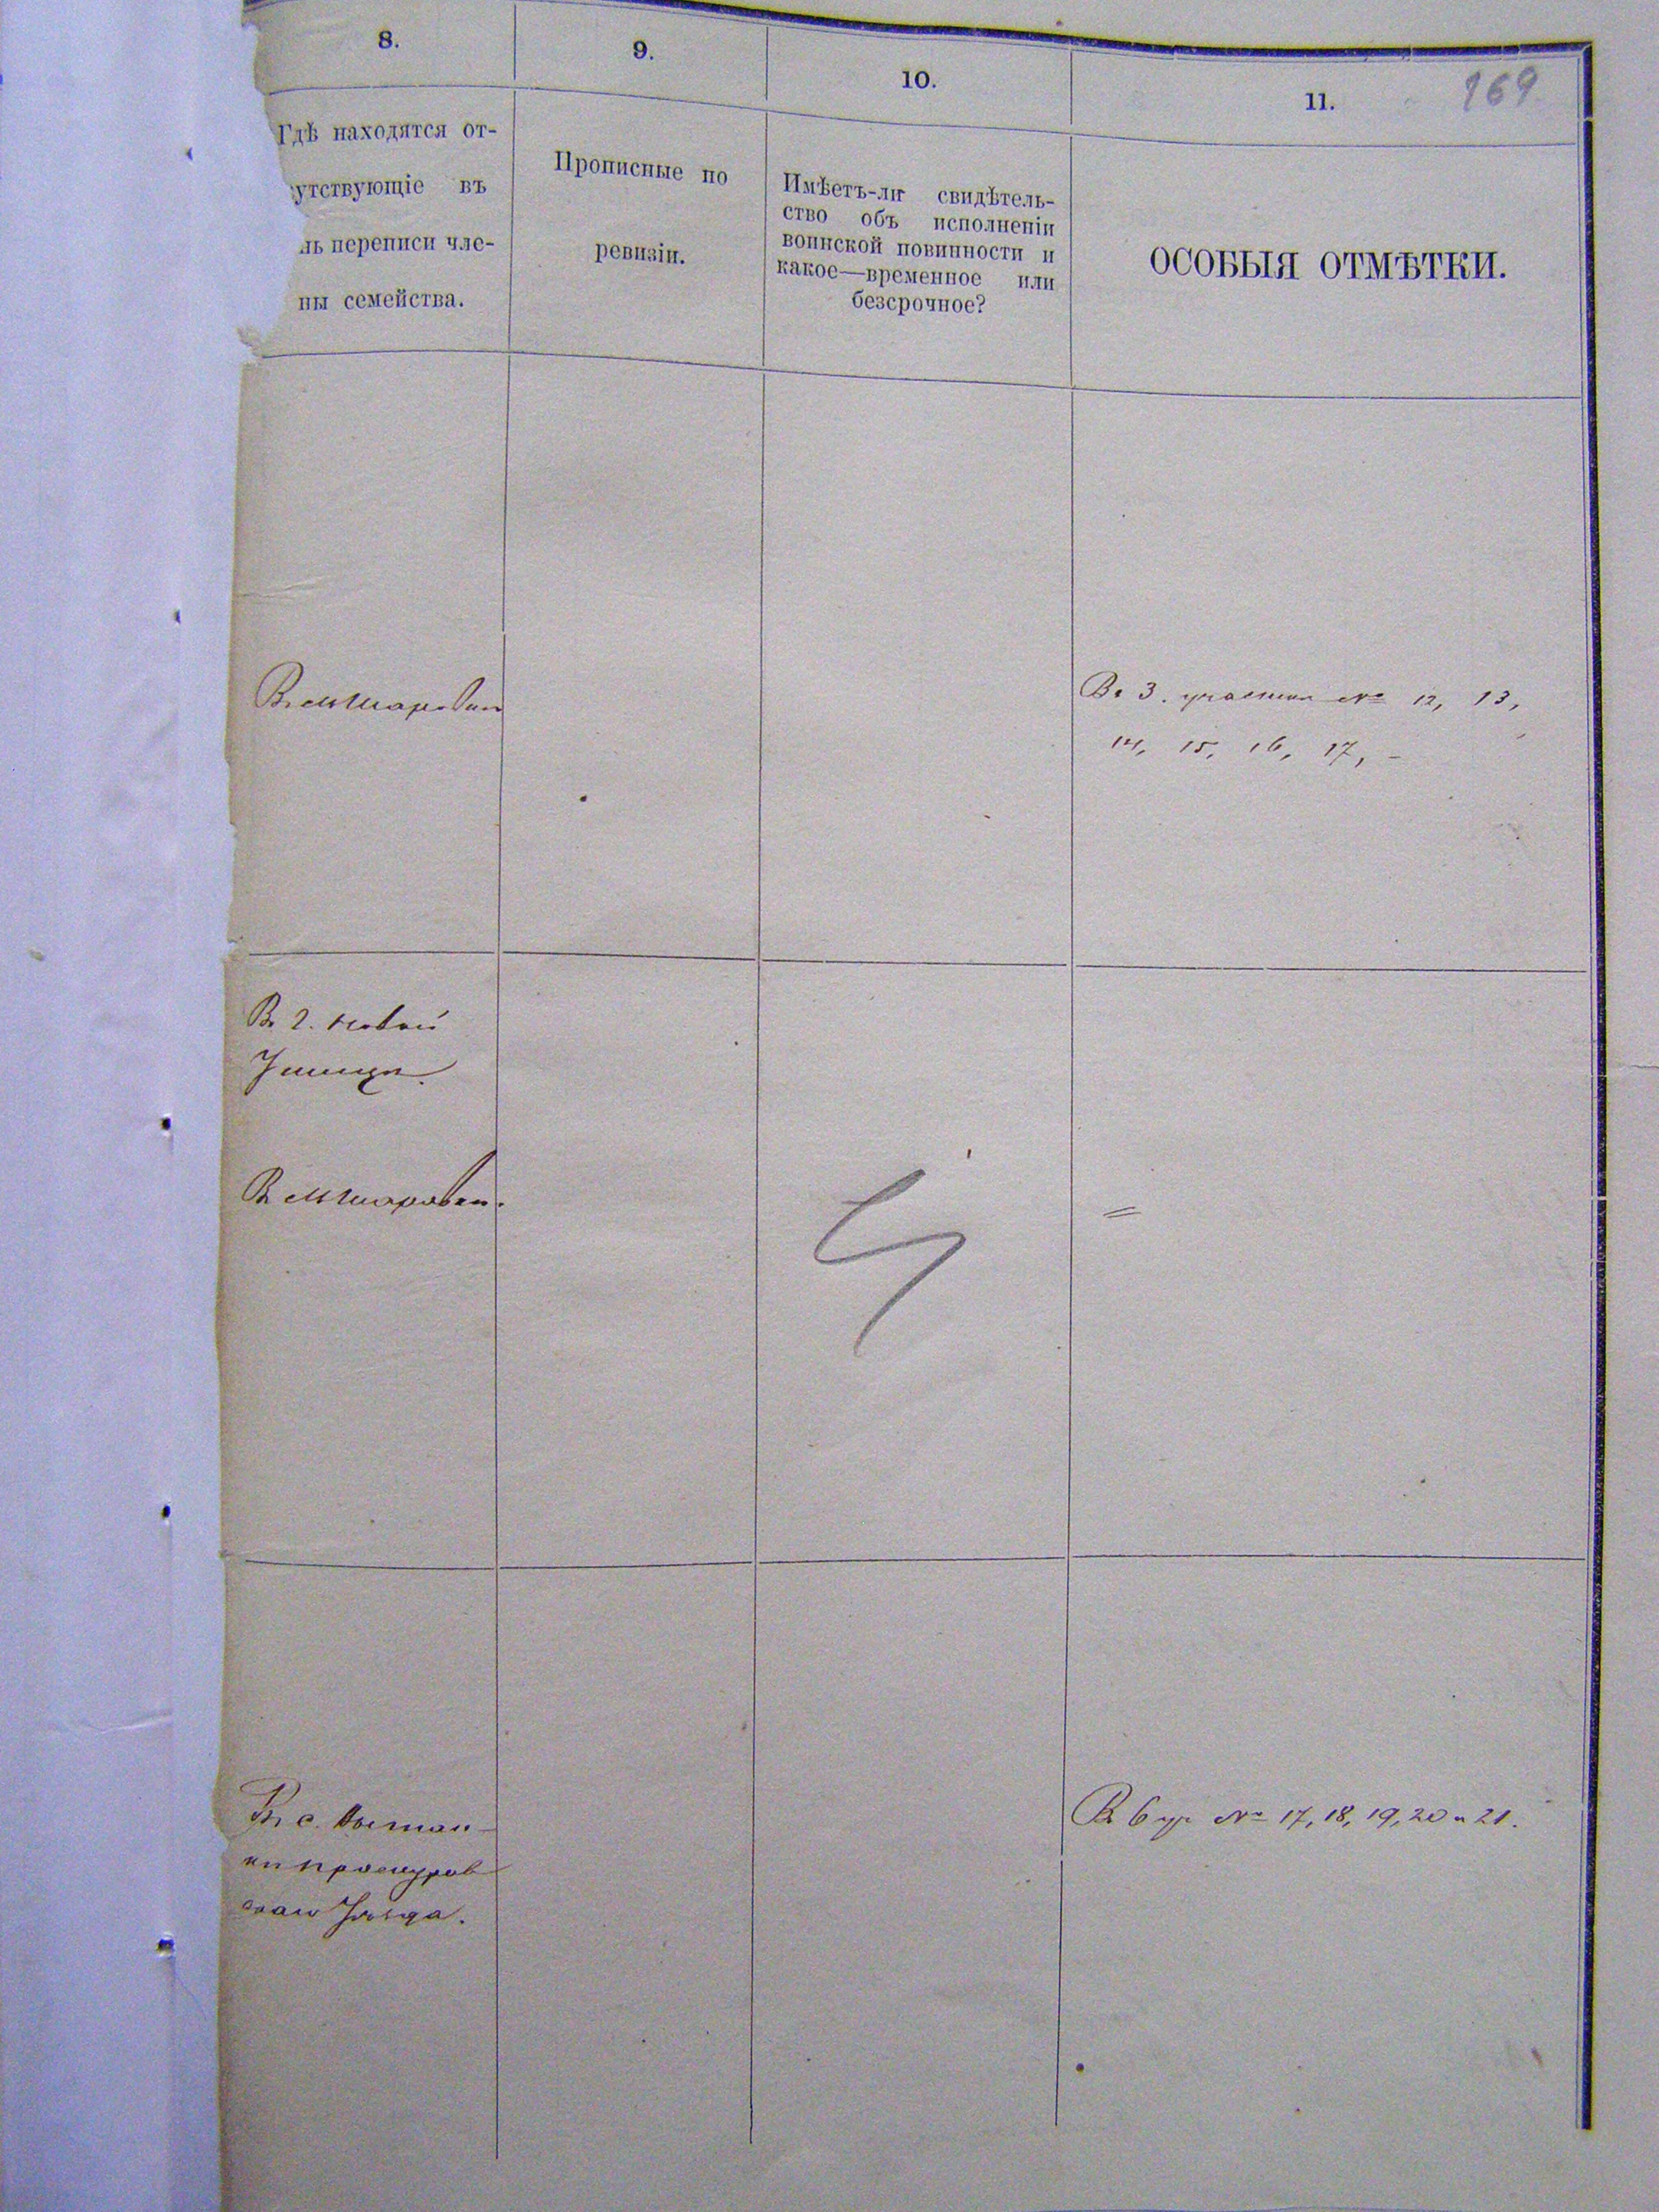 8.
9.
10.
11.
169
Гдѣ находятся от-
сутствующіе въ
нь переписи чле-
ны семейства.
Прописные по
ревизіи.
Имѣетъ-ли свидѣтель-
ство объ исполненіи
воинской повинности и
какое—временное или
безсрочное?
ОСОБЫЯ ОТМѢТКИ.
Въ м Шаровки
Въ 3. участки № 12, 13,
14, 15, 16, 17, -
Въ г. Новой
Ушицѣ.
Въ м Шаровки.
=
Въ с.
ки проскуров
скаго Уѣзда.
Въ 6 уч № 17, 18, 19, 20 и 21.